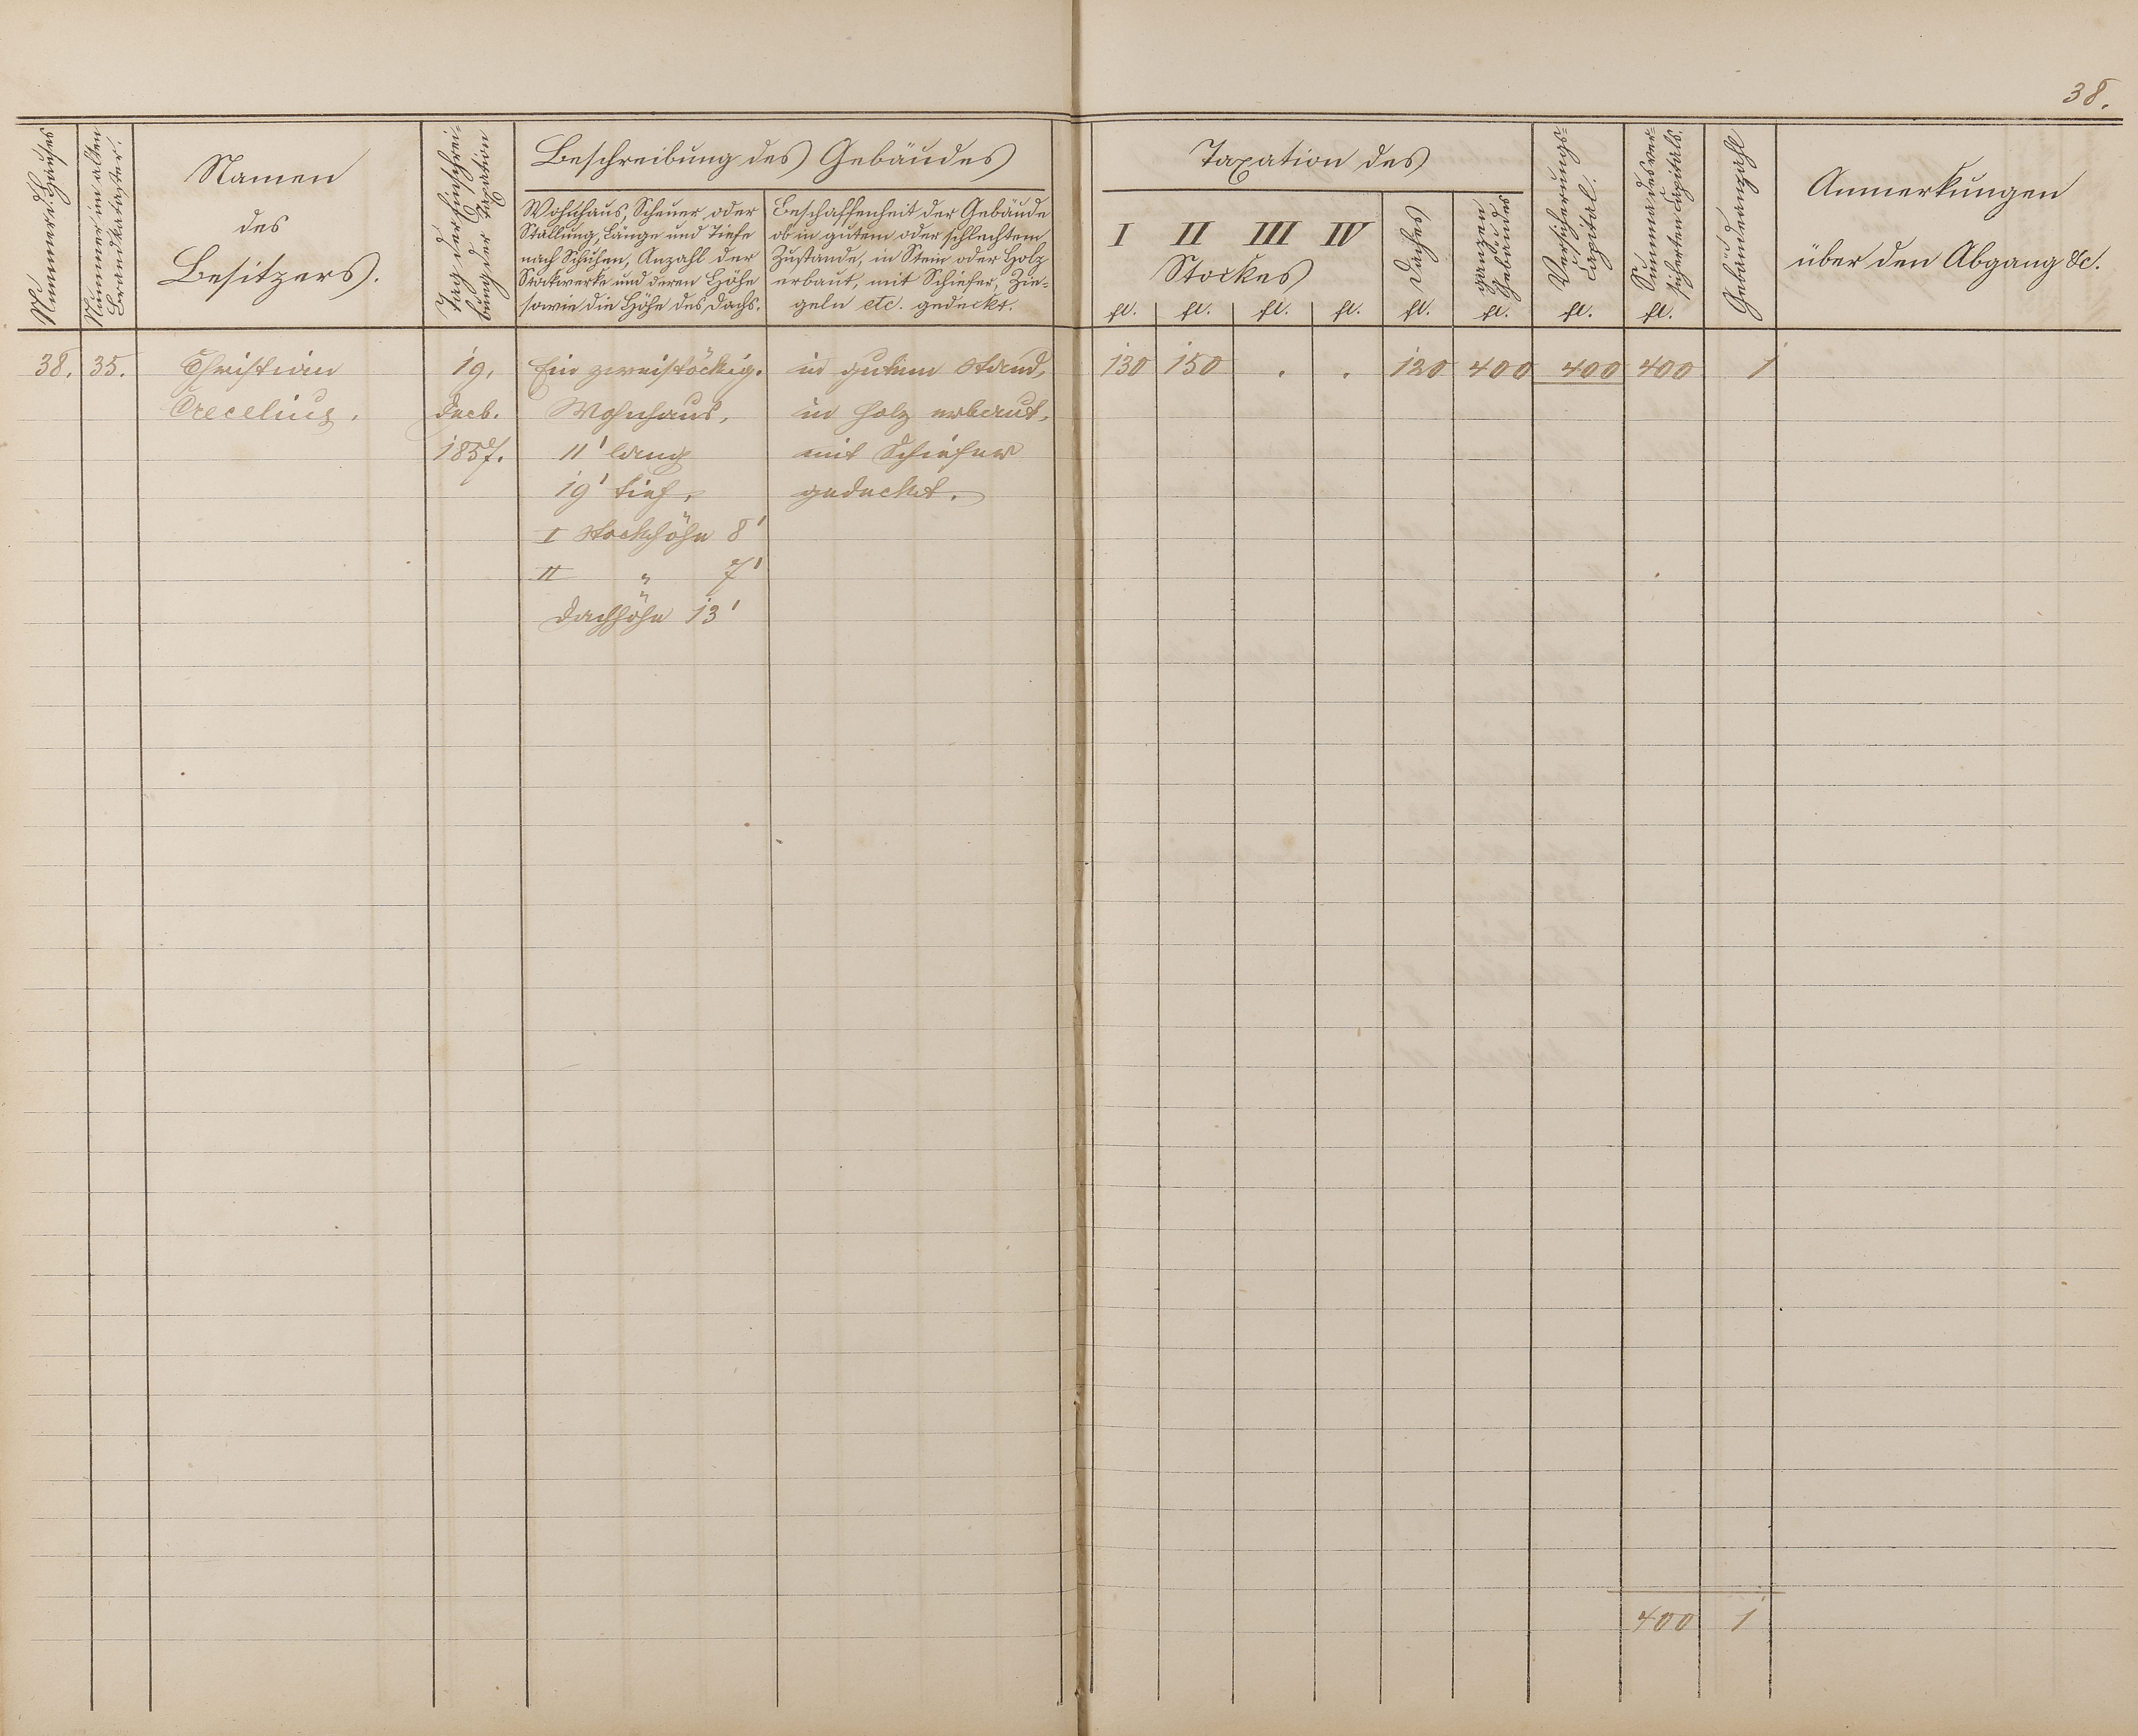 38.
Nummer d. Hauses
Nummer im alten
Brandkataster.
Namen
des
Besitzers.
Tag der Einschrei-
bung der Taxation
Beschreibung des Gebäudes
Wohnhaus, Scheuer oder
Stallung, Länge und Tiefe
nach Schuhen, Anzahl der
Stockwerke und deren Höhe
sowie die Höhe des Dachs.
Beschaffenheit der Gebäude
ob in gutem oder schlechtem
Zustande, in Stein oder Holz
erbaut, mit Schiefer, Zie-
geln etc. gedeckt.
Taxation des
I II III IV
Stockes
Daches
ganzen
Gebäudes
Versicherungs-
Capital.
Summa des ver-
sicherten Capitals.
Gebäudeanzahl
Anmerkungen
über den Abgang &c.
fl. fl. fl. fl. fl. fl. fl. fl.
38. 35. Christian 19. Ein zweistöckig. in gutem Stand, 130 150 . . 120 400 400 400 1
Crecelius. Decb. Wohnhaus, in Holz erbaut,
1857. 11' lang mit Schiefer
19' tief, gedeckt.
I Stockhöhe 8'
II " 7'
Dachhöhe 13'
400 1